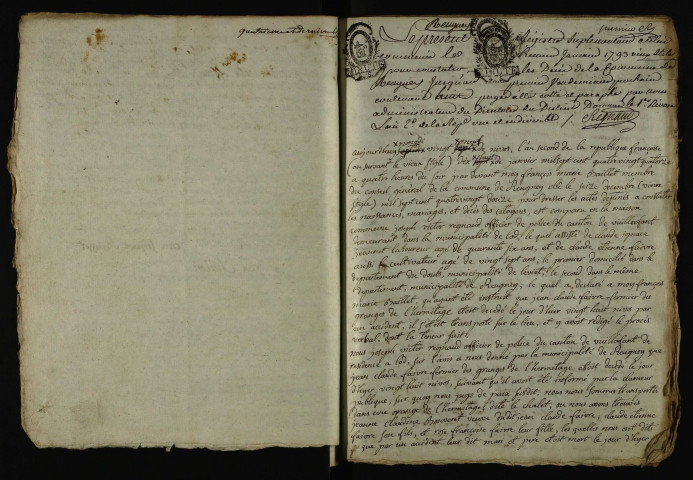 quatrieme et dernier
Reugney
premier
Le present Registre suplementaire
commencé le premier Janvier 1793 vieux stile
pour constater les Décès de la Commune de
Reugney jusqu'au premier Vendemiaire
contenant huit pages a été cotté et paraphé par nous
administrateur du Directoire du District D'ornans le 1er
une et indivisible /. Regnaud
aujourd'huy vingt neuf de nivos, l'an second de la republique françoise
(ou suivant le vieux style) dix de janvier mil sept cent quatre vingt quatorze
a quatre heures du soir par devant moy françois marie Baillet membre
du conseil général de la commune de Reugney élu le seize decembre (vieux
style) mil sept cent quatre vingt douze pour dresser les actes destinés a constater
les naissances, mariages, et décès des citoyens, est comparu en la maison
commune joseph victor regnaud officier de police du canton de vuillafant
demeurant dans la municipalité de lod, le quel assisté de claude ignace
jeannin laboureur agé de quarante six ans, et de claude etienne faivre
aussi cultivateur agé de vingt sept ans, le premier domicilié dans le
departement du doubs, municipalité de levier, le second dans le même
departement, municipalité de Reugney, le quel a déclaré a moy françois
marie Baillet, qu'ayant été instruit que jean claude faivre fermier des
granges de l'hermitage etoit decedé le jour d'hier vingt huit nivos par
un accident, il s'étoit transporté sur le lieu, et y avoit redigé le procès
verbal, dont la teneur suit.
nous joseph victor regnaud officier de police du canton de vuillafant de
residence a lod, sur l'avis a nous donné par la municipalité de Reugney que
jean claude faivre fermier des granges de l'hermitage etoit decedé le jour
d'hyer vingt huit nivos, suivant qu'il avoit été informé par la clameur
publique, sur quoy nous juge de paix susdit, nous nous sommes transporté
dans une grange de l'hermitage dite le chalet, ou nous avons trouvés
jeanne claudine veuve dudit jean claude faivre, claude etienne
faivre son fils, et rose françoise faivre leur fille, les quelles nous ont dits
que par un accident leur dit mary et pere etoit mort le jour d'hyer